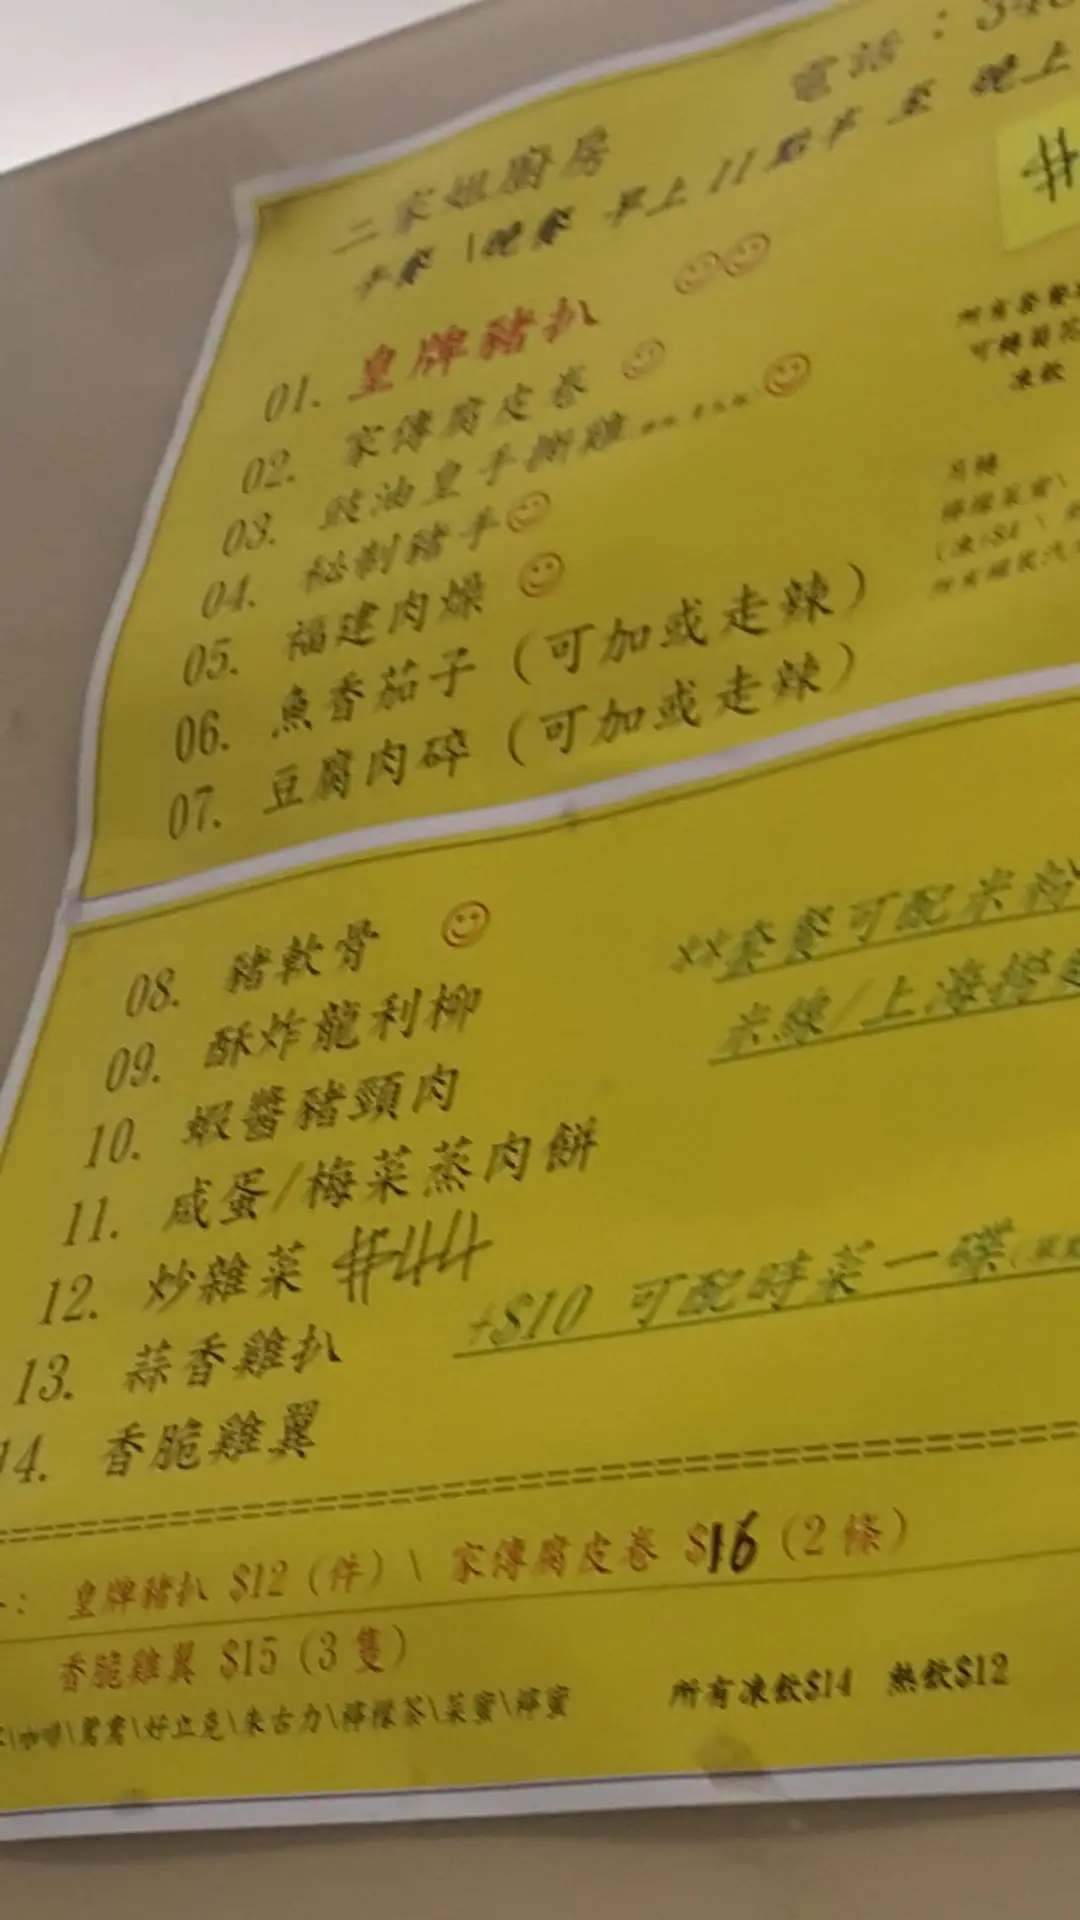 二家姐廚房 電話：348
午餐 \晚餐 早上11點半 至 晚上
#
01. 皇牌豬扒
02. 家傳腐皮卷
03. 豉油皇手撕雞
04. 秘制豬手
05. 福建肉燥
06. 魚香茄子（可加或走辣）
07. 豆腐肉碎（可加或走辣）
所有套餐
可轉菊花
凍飲
另轉
檸檬菜蜜\
(凍+$4 \
所有罐裝汽
08. 豬軟骨
09. 酥炸龍利柳
10. 蝦醬豬頸肉
11. 咸蛋/梅菜蒸肉餅
12. 炒雜菜 #44
13. 蒜香雞扒
14. 香脆雞翼
**套餐可配米粉\
米線/上海
+$10 可配時菜一碟
: 皇牌豬扒 $12（件）\ 家傳腐皮卷 $16（2 條）
香脆雞翼 $15（3 隻）
\咖啡\鴛鴦\好立克\朱古力\檸檬茶\菜蜜\檸蜜 所有凍飲$14 熱飲$12